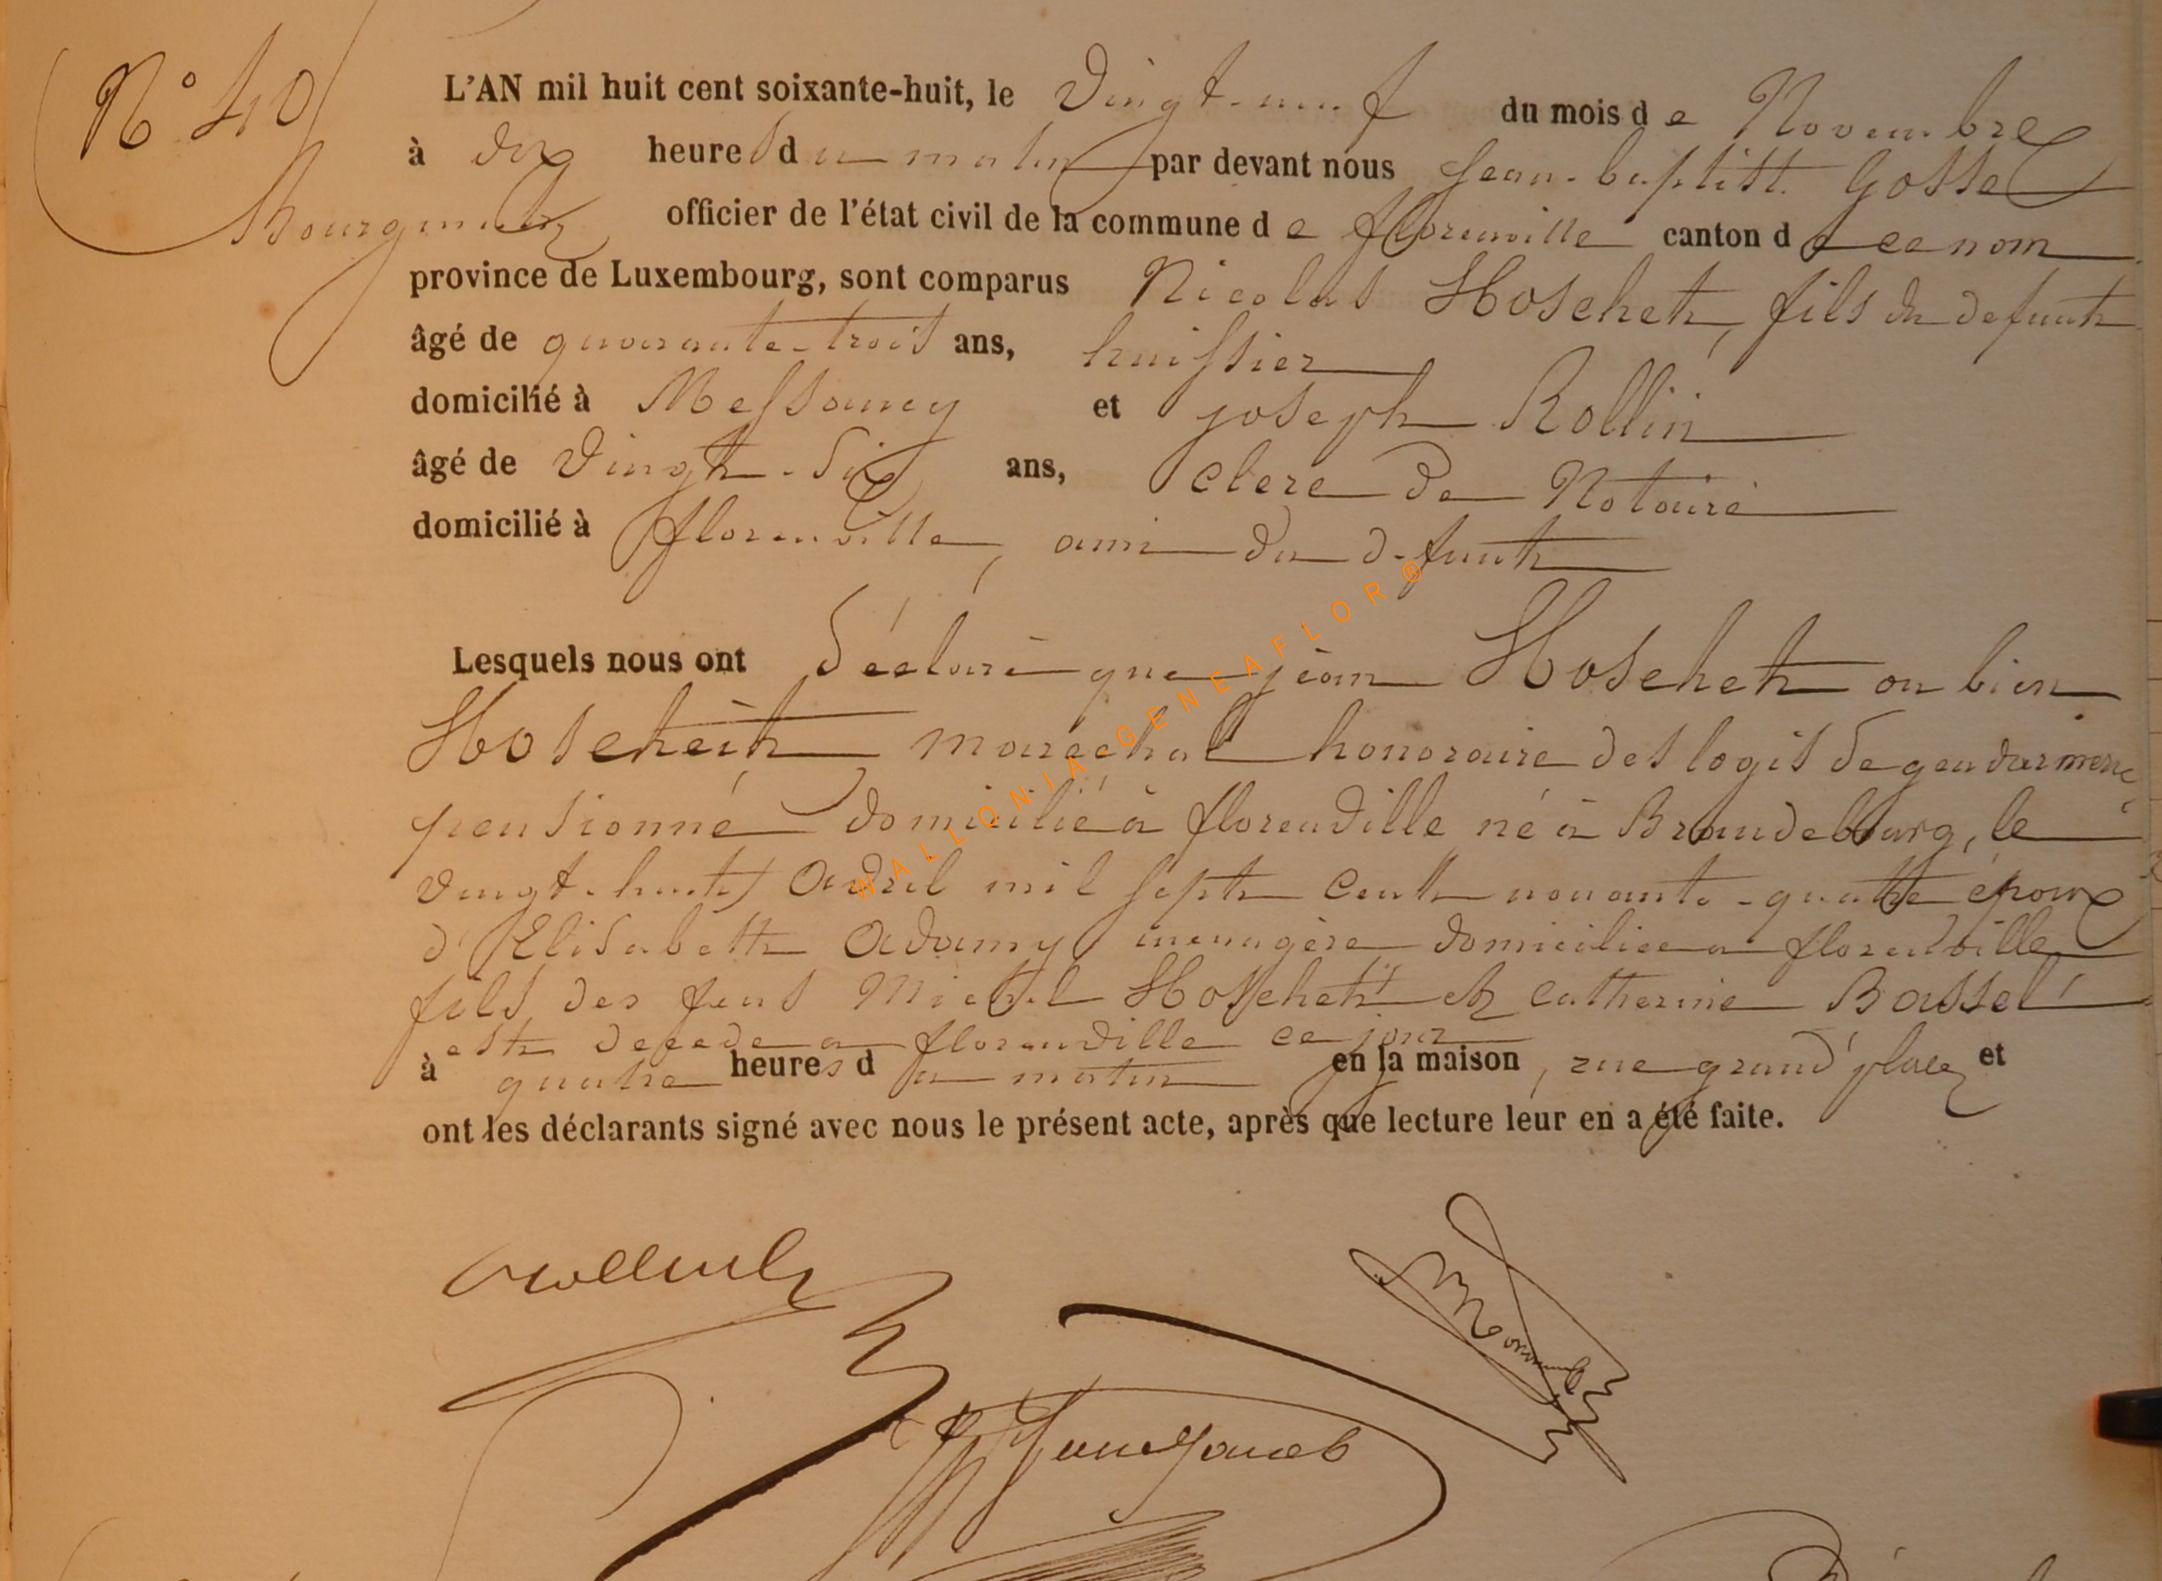 N° 40
L'AN mil huit cent soixante-huit, le Vingt-neuf du mois de Novembre
à dix heures du matin par devant nous Jean-baptiste Gosse
Bourgmestre officier de l'état civil de la commune de florenville canton de ce nom
province de Luxembourg, sont comparus Nicolas Hoschet, fils du defunt
âgé de quarante-trois ans, huissier
domicilié à Messancy et joseph Rollin
âgé de Vingt-six ans, clerc de Notaire
domicilié à florenville, ami du defunt
Lesquels nous ont déclaré que jean Hoschet ou bien
Hoscheit marechal honoraire des logis de gendarmerie
pensionné domicilié à florenville né à Brandebourg, le
vingt-huit Avril mil sept cent nonante-quatre époux
d'Elisabeth Adamy menagère domiciliée a florenville
fils des feus Michel Hoschet et catherine Bassel
est decede a florenville ce jour
à quatre heures du matin en sa maison, rue grand'place et
ont les déclarants signé avec nous le présent acte, après que lecture leur en a été faite.
WALLONIA-GENEAFLOR®